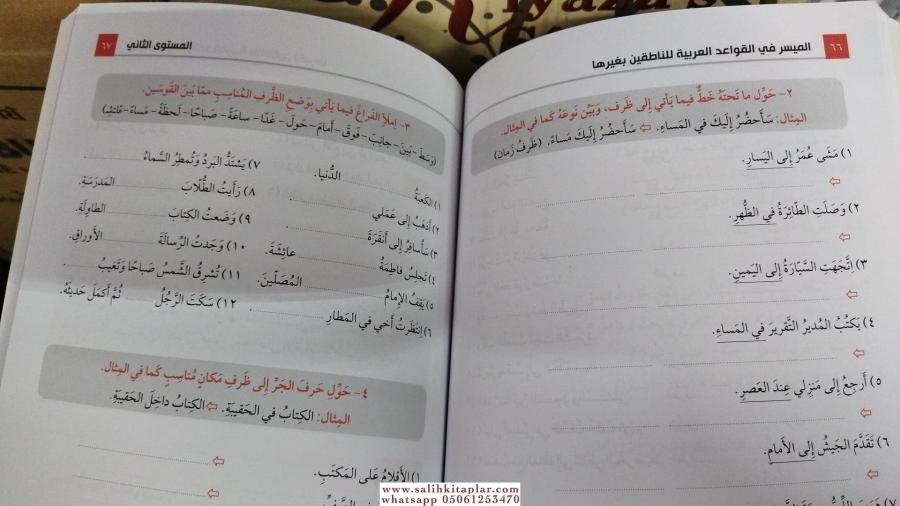 الميسر في القواعد العربية للناطقين بغيرها ٦٦
٢- حَوِّل ما تَحتَهُ خَطٌّ فيما يَأتي إلى ظَرف، وَبَيِّن نَوعَهُ كَما في المِثال.
المِثال: سَأَحضُرُ إِلَيكَ في المَساءِ. سَأَحضُرُ إِلَيكَ مَساءً. (ظَرفُ زَمان)
١) مَشَى عُمَرُ إلى اليَسارِ.
٢) وَصَلَتِ الطّائِرَةُ في الظُّهرِ.
٣) اِتَّجَهَتِ السَّيّارَةُ إلى اليَمينِ.
٤) يَكتُبُ المُديرُ التَّقريرَ في المَساءِ.
٥) أَرجِعُ إلى مَنزِلي عِندَ العَصرِ.
٦) تَقَدَّمَ الجَيشُ إلى الأَمامِ.
المستوى الثاني ٦٧
٣- اِملَأِ الفَراغَ فيما يَأتي بِوَضعِ الظَّرفِ المُناسِبِ مِمّا بَينَ القَوسَينِ.
(وَسَطَ - بَينَ - جانِبَ - فَوقَ - أَمامَ - حَولَ - غَدًا - ساعَةً - صَباحًا - لَحظَةً - مَساءً - خَلفَ)
١) الكَعبَةُ الدُّنيا.
٢) أَذهَبُ إلى عَمَلي .
٣) سَأُسافِرُ إلى أَنقَرَةَ .
٤) تَجلِسُ فاطِمَةُ عائِشَةَ.
٥) يَقِفُ الإِمامُ المُصَلّينَ.
٦) اِنتَظَرتُ أَخي في المَطارِ .
٧) يَشتَدُّ البَردُ وَتُمطِرُ السَّماءُ
٨) رَأَيتُ الطُّلّابَ المَدرَسَةِ.
٩) وَضَعتُ الكِتابَ الطاوِلَةِ.
١٠) وَجَدتُ الرِّسالَةَ الأَوراقِ.
١١) تُشرِقُ الشَّمسُ صَباحًا وَتَغيبُ
١٢) سَكَتَ الرَّجُلُ ثُمَّ أَكمَلَ حَديثَهُ.
٤- حَوِّل حَرفَ الجَرِّ إلى ظَرفِ مَكانٍ مُناسِبٍ كَما في المِثال.
المِثال: الكِتابُ في الحَقيبَةِ. الكِتابُ داخِلَ الحَقيبَةِ.
١) الأَقلامُ عَلى المَكتَبِ.
www.salihkitaplar.com
whatsapp 05061253470